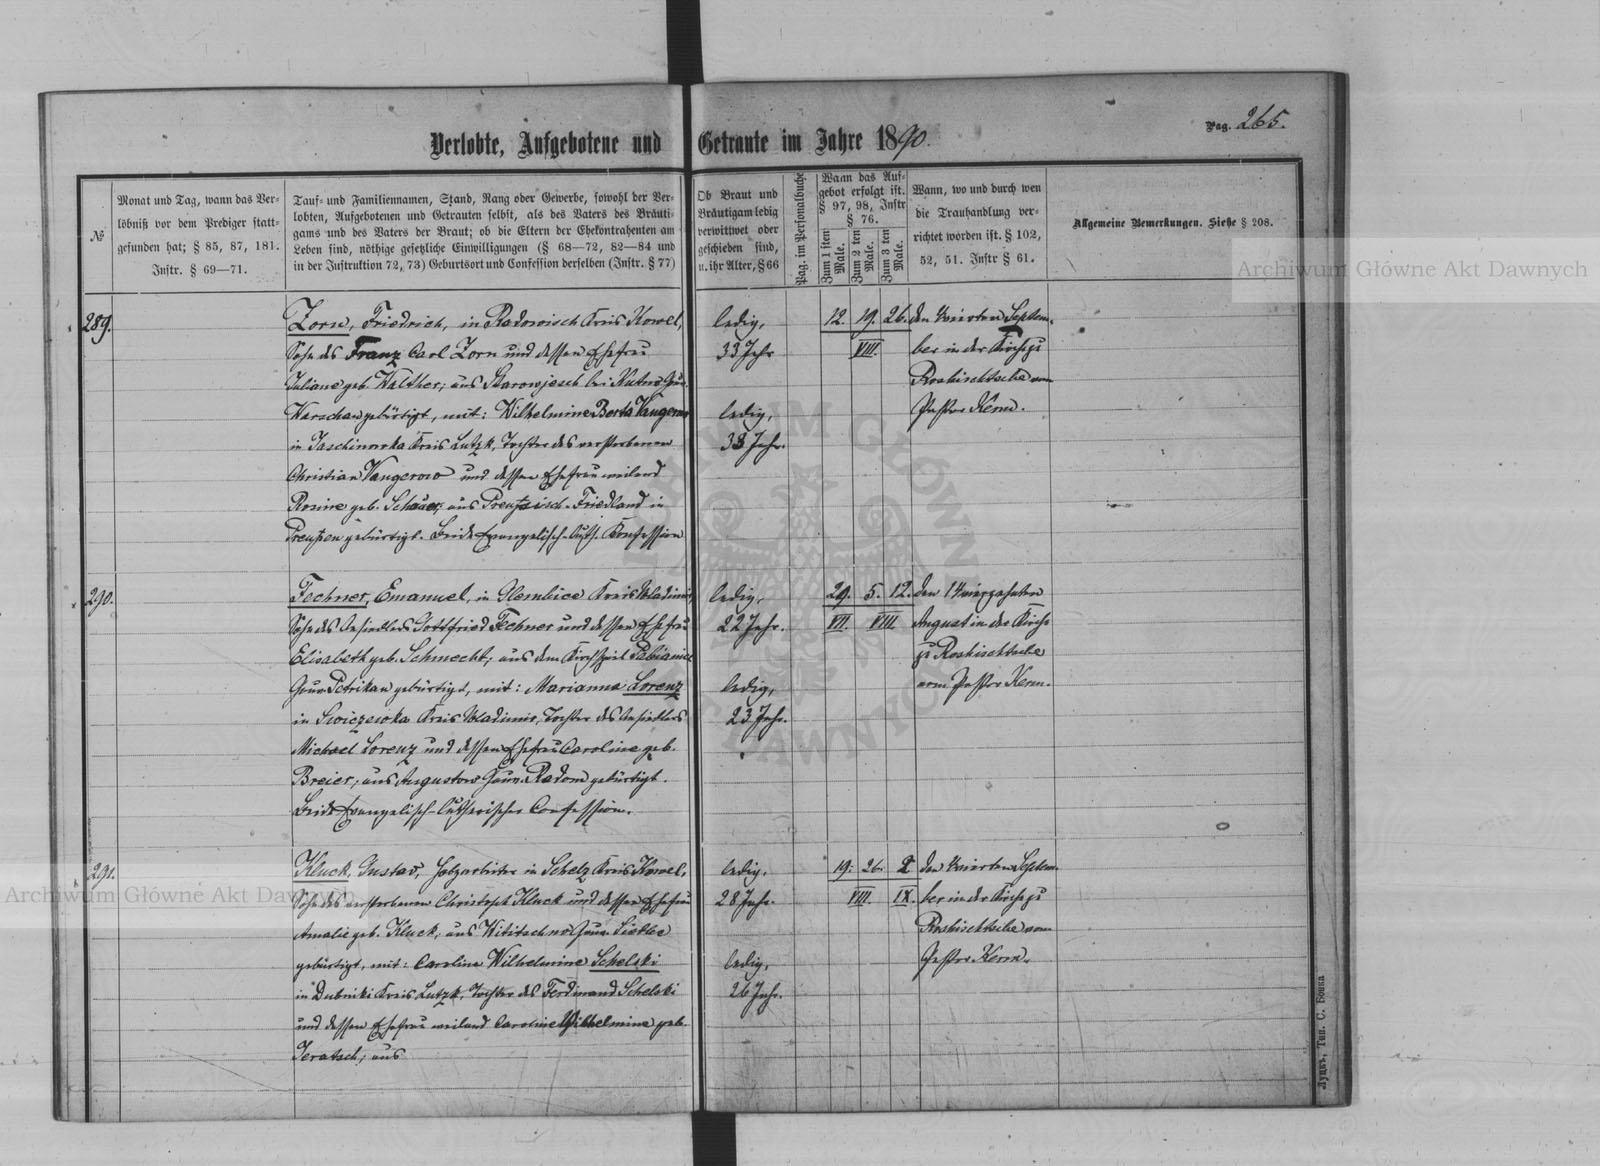 Pag. 265.
Verlobte, Aufgebotene und Getraute im Jahre 1890.
№
Monat und Tag, wann das Ver-
löbniß vor dem Prediger statt-
gefunden hat; § 85, 87, 181.
Instr. § 69—71.
Tauf- und Familiennamen, Stand, Rang oder Gewerbe, sowohl der Ver-
lobten, Aufgebotenen und Getrauten selbst, als des Vaters des Bräuti-
gams und des Vaters der Braut; ob die Eltern der Ehekontrahenten am
Leben sind, nöthige gesetzliche Einwilligungen (§ 68—72, 82—84 und
in der Instruktion 72, 73) Geburtsort und Confession derselben (Instr. § 77)
Ob Braut und
Bräutigam ledig
verwittwet oder
geschieden sind,
u. ihr Alter, § 66
Pag. im Personalbuche
Wann das Auf-
gebot erfolgt ist.
§ 97, 98, Instr
§ 76.
Zum 1 sten Male.
Zum 2 ten Male.
Zum 3 ten Male.
Wann, wo und durch wen
die Trauhandlung ver-
richtet worden ist. § 102,
52, 51. Instr § 61.
Allgemeine Bemerkungen. Siehe § 208.
Archiwum Główne Akt Dawnych
289.
Zorn, Friedrich, in Radowisch Kreis Kowel,
Sohn des Franz Carl Zorn und dessen Ehefrau
Juliane geb. Walther; aus Starowjesch bei Kutno Guv.
Warschau gebürtigt, mit: Wilhelmine Berta Vangerow
in Jaschinowka Kreis Lutzk, Tochter des verstorbenen
Christian Vangerow und dessen Ehefrau weiland
Rosine geb. Schauer; aus Preußisch-Friedland in
Preußen gebürtigt. Beide Evangelisch-Luth. Konfession
ledig,
33 Jahr
ledig,
38 Jahr.
12. 19. 26.
VIII.
den vierten Septem-
ber in der Kirche zu
Roshischtsche vom
Pastor Kerm.
290.
Fechner, Emanuel, in Hembice Kreis Wladimir,
Sohn des Ansiedlers Gottfried Fechner und dessen Ehefrau
Elisabeth geb. Schmecht; aus dem Kirchspiel Pabianice
Guv. Petrikau gebürtigt, mit: Marianna Lorenz
in Swiczewka Kreis Wladimir, Tochter des Ansiedlers
Michael Lorenz und dessen Ehefrau Caroline geb.
Breier; aus Augustow Guv. Radom gebürtigt.
Beide Evangelisch-lutherischer Confession.
ledig,
22 Jahr.
ledig,
23 Jahr.
29. 5. 12.
VII. VIII.
den 14 vierzehnten
August in der Kirche
zu Roshischtsche
vom Pastor Kerm.
291.
Kluck, Gustav, Holzarbeiter in Schelz Kreis Kowel,
Sohn des verstorbenen Christoph Kluck und dessen Ehefrau
Amalie geb. Kluck; aus Wititschno Guv. Siedlce
gebürtigt, mit: Caroline Wilhelmine Schelski
in Dubniki Kreis Lutzk, Tochter des Ferdinand Schelski
und dessen Ehefrau weiland Caroline Wilhelmine geb.
Jeratsch; aus
ledig,
28 Jahr.
ledig,
26 Jahr.
19. 26. 2
VIII. IX.
den vierten Septem-
ber in der Kirche zu
Roshischtsche vom
Pastor Kerm.
Archiwum Główne Akt Dawnych
Луцкъ, Тип. С. Бокка